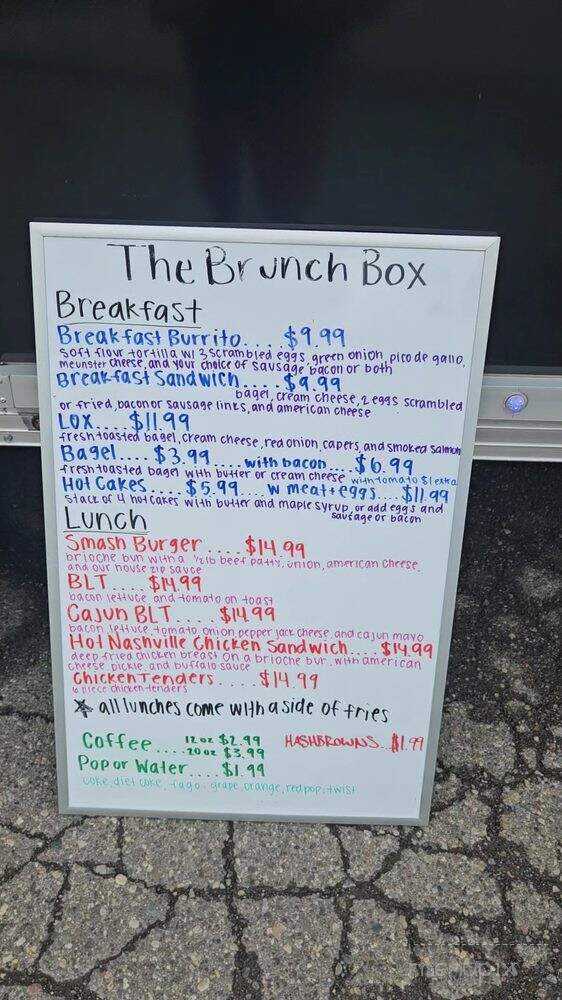 The Brunch Box
Breakfast
Breakfast Burrito.... $9.99
soft flour tortilla w/ 3 scrambled eggs, green onion, pico de gallo,
meunster cheese, and your choice of sausage bacon or both
Breakfast Sandwich.... $9.99
bagel, cream cheese, 2 eggs scrambled
or fried, bacon or sausage links, and american cheese
Lox.... $11.99
fresh toasted bagel, cream cheese, red onion, capers, and smoked salmon
Bagel.... $3.99 ....with bacon.... $6.99
fresh toasted bagel with butter or cream cheese with tomato $1 extra
Hot Cakes.... $5.99.... w meat + eggs.... $11.99
stack of 4 hotcakes with butter and maple syrup, or add eggs and
sausage or bacon
Lunch
Smash Burger .... $14.99
brioche bun with a 1/2 lb beef patty, onion, american cheese,
and our house zip sauce
BLT.... $14.99
bacon lettuce and tomato on toast
Cajun BLT.... $14.99
bacon, lettuce, tomato onion pepper jack cheese, and cajun mayo
Hot Nashville Chicken Sandwich.... $14.99
deep fried chicken breast on a brioche bun, with american
cheese, pickle, and buffalo sauce
Chicken Tenders.... $14.99
6 piece chicken tenders
★ all lunches come with a side of fries
Coffee.... 12 oz $2.99
....20 oz $3.99
HASHBROWNS... $1.99
Pop or Water.... $1.99
coke, diet coke, faygo: grape, orange, redpop, twist
menupix